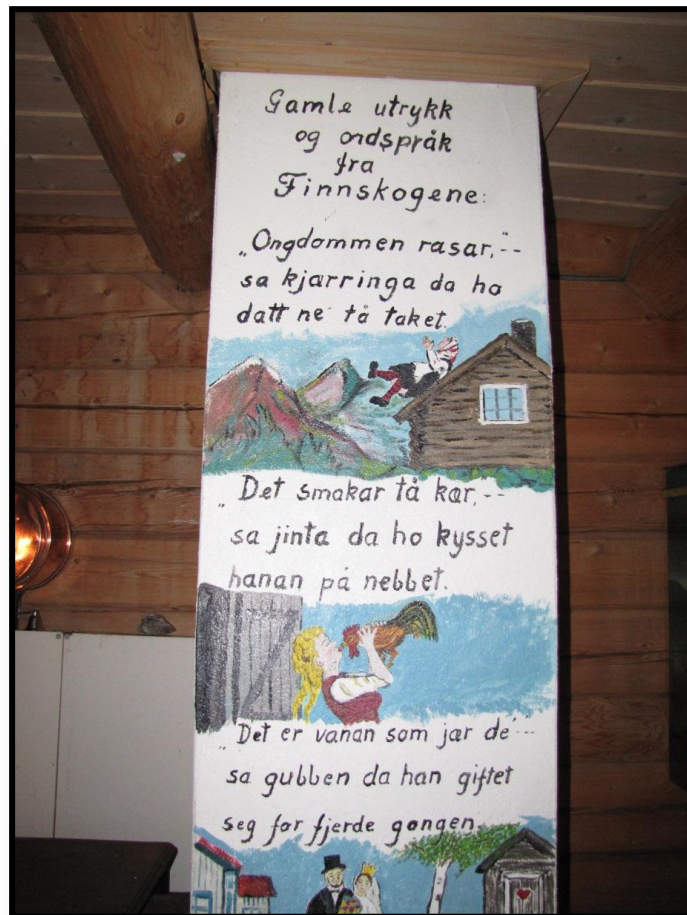 Gamle utrykk
og ordspråk
fra
Finnskogene:
„Ongdommen rasar,"--
sa kjærringa da ho
datt ne tå taket.
„Det smakar tå kar,--
sa jinta da ho kysset
hanan på nebbet.
„Det er vanan som jar de"--
sa gubben da han giftet
seg for fjerde gongen.